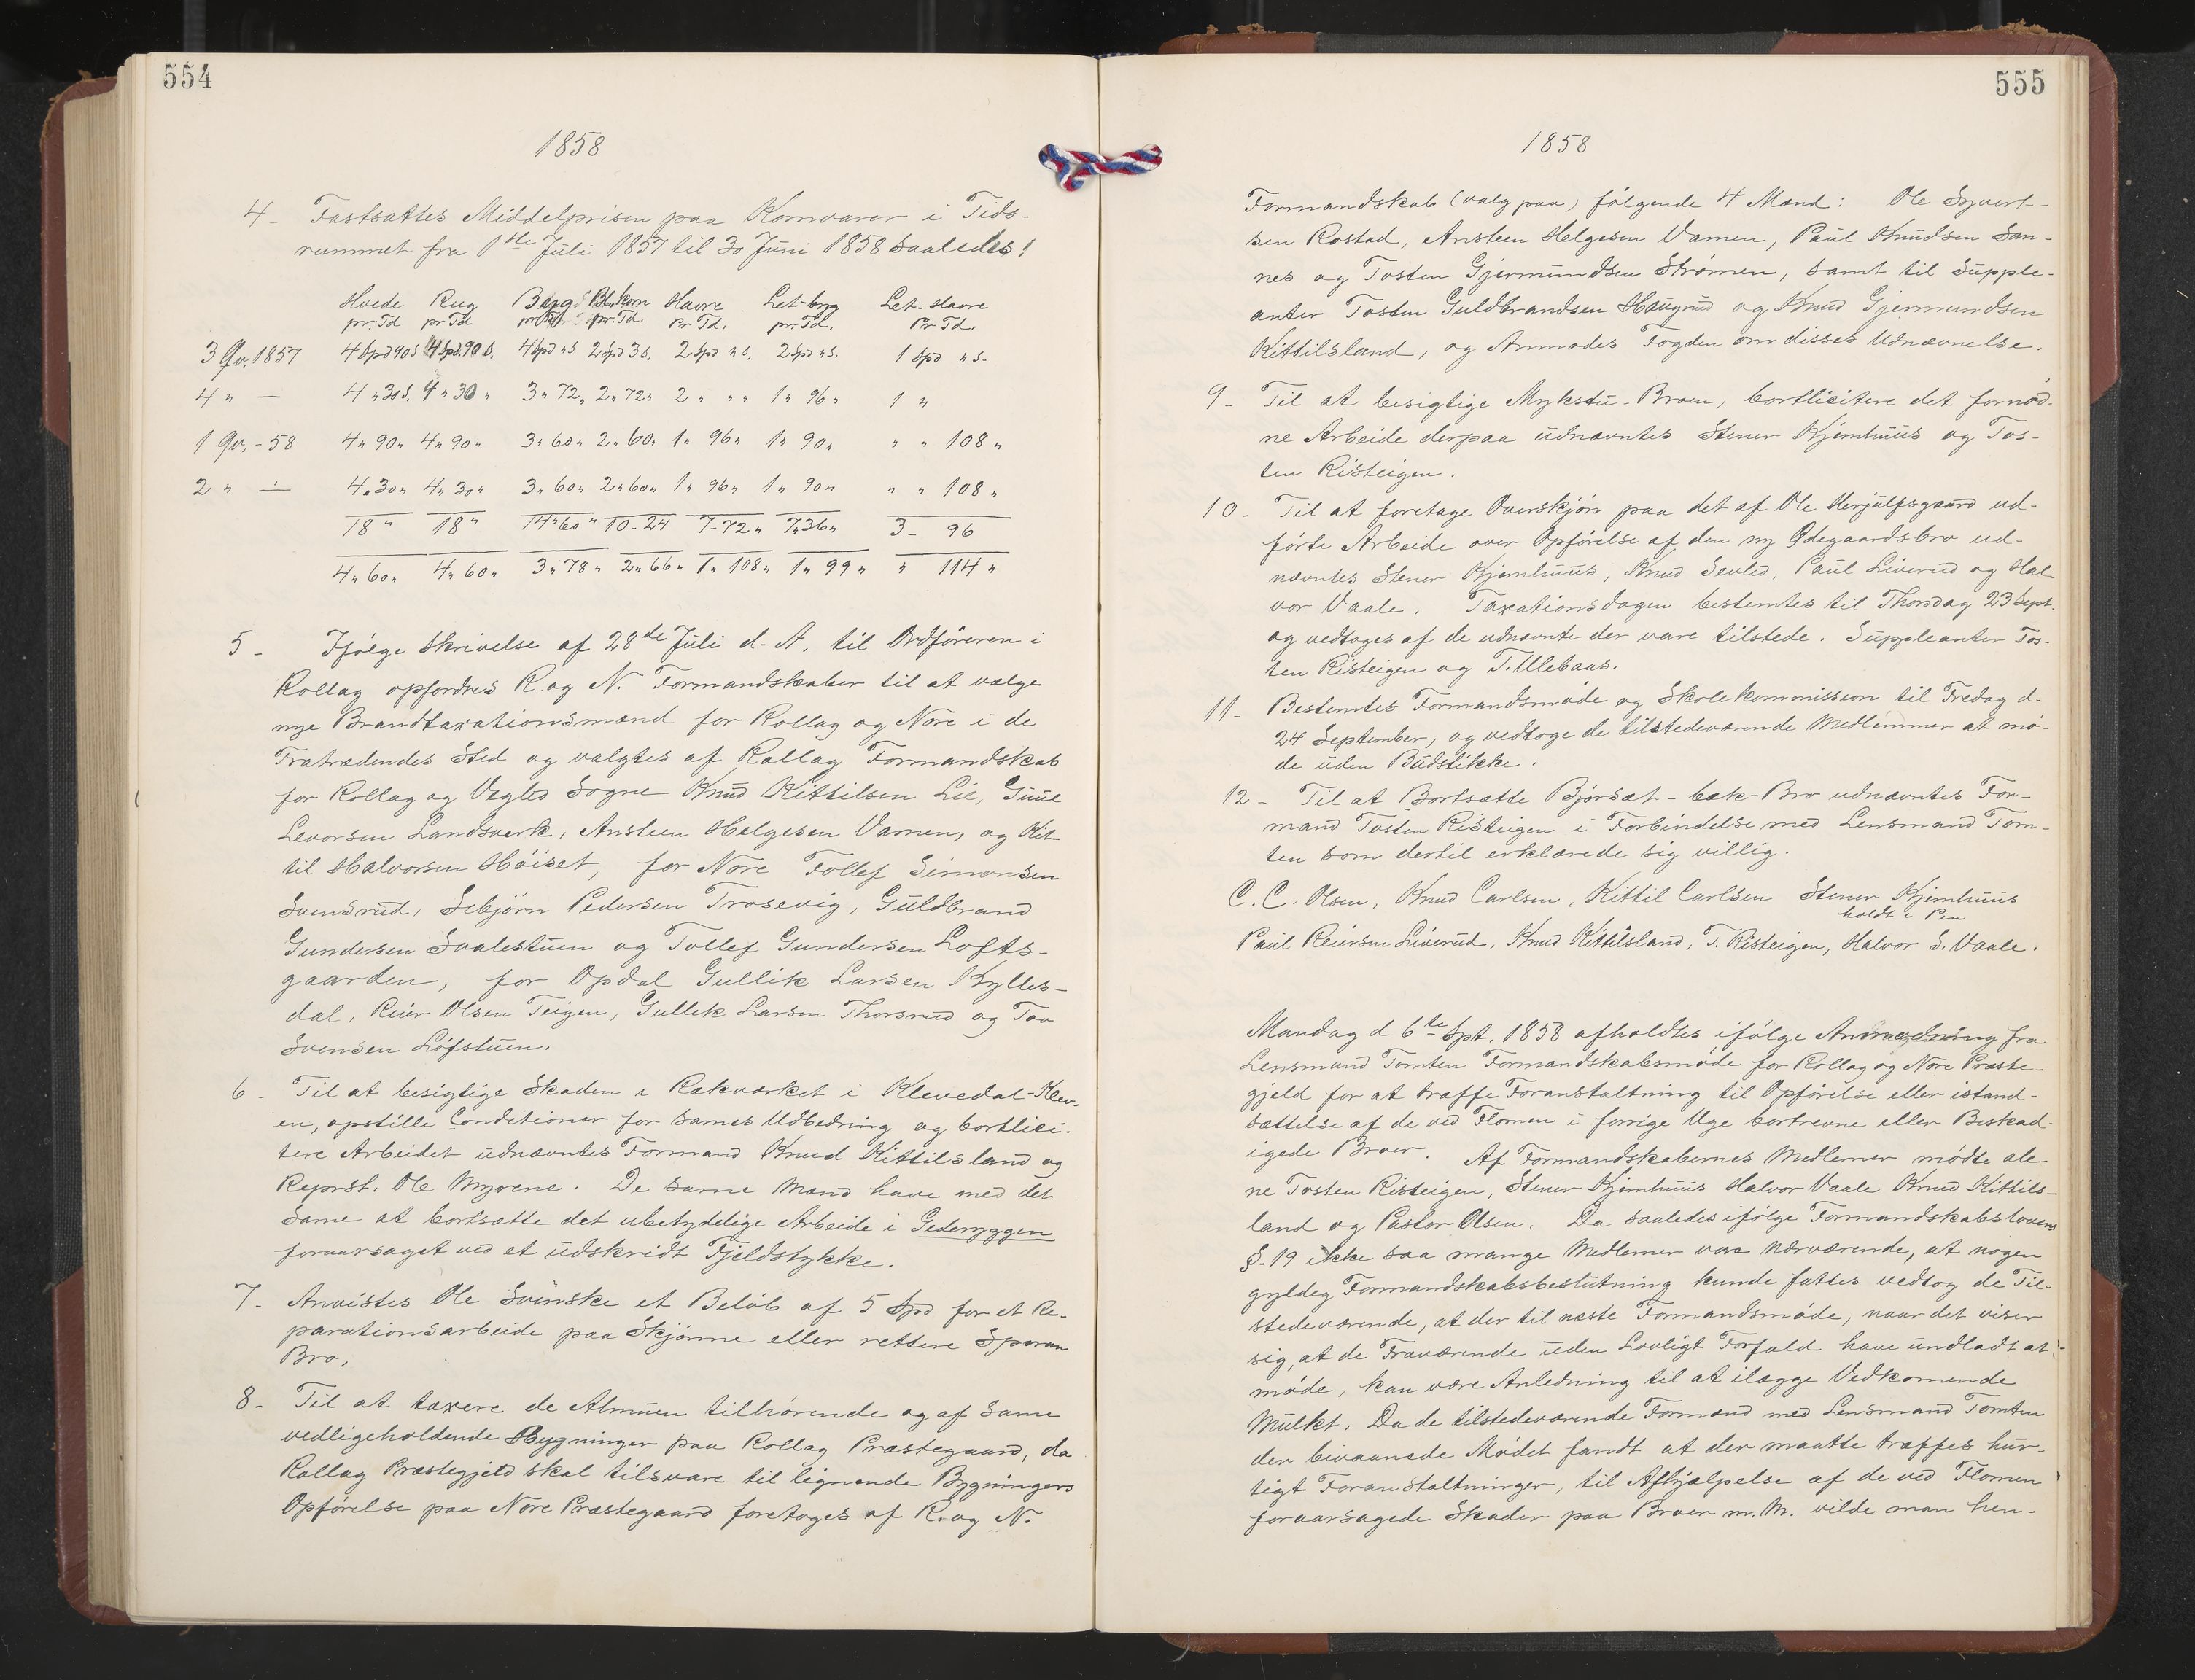 554
1858
4 - Fastsattes Middelprisen paa Kornvarer i Tids-
rummet fra 1ste Juli 1857 til 30 Juni 1858 saaledes:
Hvede Rug Byg Bl.korn Havre Let-byg Let-Havre
pr. Td pr Td pr Td pr. Td. Pr Td. pr. Td. Pr Td.
3 Qv. 1857 4 Spd 90 S 4 Spd. 90 S. 4 Spd " S 2 Spd 3 S. 2 Spd " S. 2 Spd " S. 1 Spd " S.
4 " — 4 " 30 S. 4 " 30 " 3 " 72 " 2 " 72 " 2 " " " 1 " 96 " 1 "
1 Qv. - 58 4 " 90 " 4 " 90 " 3 " 60 " 2 " 60 " 1 " 96 " 1 " 90 " " " 108 "
2 " — 4 " 30 " 4 " 30 " 3 " 60 " 2 " 60 " 1 " 96 " 1 " 90 " " " 108 "
18 " 18 " 14 " 60 " 10 - 24 7 - 72 " 7 " 36 " 3 - 96
4 " 60 " 4 " 60 " 3 " 78 " 2 " 66 " 1 " 108 " 1 " 99 " " 114 "
5 - Ifølge Skrivelse af 28de Juli d. A. til Ordføreren i
Rollag opfordres R. og N. Formandskaber til at vælge
nye Brandtaxationsmænd for Rollag og Nore i de
Fratrædendes Sted og valgtes af Rollag Formandskab
for Rollag og Vegled Sogne Knud Kittilsen Lie, Guul
Levorsen Landsverk, Ansteen Helgesen Vamen, og Kit-
til Halvorsen Høiset, for Nore Tollef Simonsen
Svensrud, Sebjørn Pedersen Traaevig, Guldbrand
Gundersen Svalestuen og Tollef Gundersen Lofts-
gaarden, for Opdal Gullik Larsen Kylles-
dal, Reier Olsen Teigen, Gullek Larsen Thorsrud og Tov
Svensen Løfstuen.
6 - Til at besigtige Skaden i Rækværket i Klevedal-Klev-
en, opstille Conditioner for sames Udbedring og bortlici-
tere Arbeidet udnævntes Formand Knud Kittilsland og
Reprst. Ole Myrene. De same Mænd have med det
same at bortsætte det ubetydelige Arbeide i Gederyggen
foraarsaget ved et udskredt Fjeldstykke.
7 - Anvistes Ole Svinske et Beløb af 5 Spd for et Re-
parationsarbeide paa Skjønne eller rettere Sporan
Bro.
8 - Til at taxere de Almuen tilhørende og af same
vedligeholdende Bygninger paa Rollag Præstegaard, da
Rollag Præstegjeld skal tilsvare til lignende Bygningers
Opførelse paa Nore Præstegaard foretoges af R. og N.
555
1858
Formandskab (valg paa) følgende 4 Mænd: Ole Syvert-
sen Rostad, Ansteen Helgesen Vamen, Paul Knudsen San-
nes og Tosten Gjermundsen Strømen, samt til Supple-
anter Tosten Guldbrandsen Haugrud og Knud Gjermundsen
Kittilsland, og Anmodes Fogden om disses Udnævnelse.
9 - Til at besigtige Mykstu-Broen, bortlicitere det fornød-
ne Arbeide derpaa udnævntes Stener Kjemhuus og Tos-
ten Risteigen.
10 - Til at foretage Overskjøn paa det af Ole Herjulfsgaard ud-
førte Arbeide over Opførelse af den ny Ødegaardsbro ud-
nævntes Stener Kjemhuus, Knud Sevled, Paul Liverud og Hal-
vor Vaale. Taxationsdagen bestemtes til Thorsdag 23 Sept.
og vedtoges af de udnævnte der vare tilstede. Suppleanter Tos-
ten Risteigen og T. Ullebaas.
11 - Bestemtes Formandsmøde og Skolekommission til Fredag d.
24 September, og vedtoge de tilstedeværende Medlemmer at mø-
de uden Budstikke.
12 - Til at Bortsætte Bjørsæt-bæk-Bro udnævntes For-
mand Tosten Risteigen i Forbindelse med Lensmand Tom-
ten som dertil erklærede sig villig.
C. C. Olsen, Knud Carlsen, Kittil Carlsen Stener Kjemhuus
holdt i Pen
Paul Reiersen Liverud, Knud Kittilsland, T. Risteigen, Halvor S. Vaale.
Mandag d 6te Spt. 1858 afholdtes ifølge Anmodning fra
Lensmand Tomten Formandskabsmøde for Rollag og Nore Præste-
gjeld for at træffe Foranstaltning til Opførelse eller istand-
sættelse af de ved Flomen i forrige Uge bortrevne eller Beskad-
igede Broer. Af Formandskabernes Medlemer mødte ale-
ne Tosten Risteigen, Stener Kjemhuus Halvor Vaale Knud Kittils-
land og Pastor Olsen. Da saaledes ifølge Formandskabslovens
§. 19 ikke saa mange Medlemer vare nærværende, at nogen
gyldig Formandskabsbeslutning kunde fattes vedtog de Til-
stedeværende, at der til næste Formandsmøde, naar det viser
sig, at de Fraværende uden Lovligt Forfald have undladt at
møde, kan være Anledning til at ilægge Vedkomende
Mulkt. Da de tilstedeværende Formænd med Lensmand Tomten
der bivaanede Mødet fandt at der maatte træffes hur-
tigt Foranstaltninger, til Afhjælpelse af de ved Flomen
foraarsagede Skader paa Broer m. M. vilde man hen-